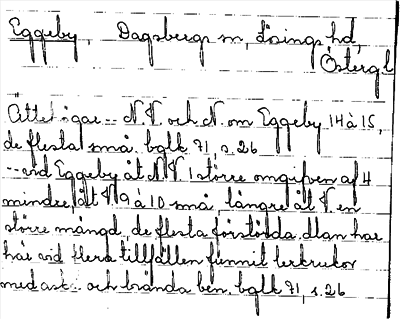 Eggeby, Dagsbergs sn, Lösings hd,
Östergl
Ättehögar -- N.V. och N. om Eggeby 14 à 15,
de flesta små. bglk 71 s. 26
-- vid Eggeby åt N.V. 1 större omgifven af 4
mindre, åt V. 9 à 10 små, längre åt V. en
större mängd, de flesta förstörda. Man har
här vid flera tillfällen funnit lerkrukor
med ask -- och brända ben. bglk 71, s. 26